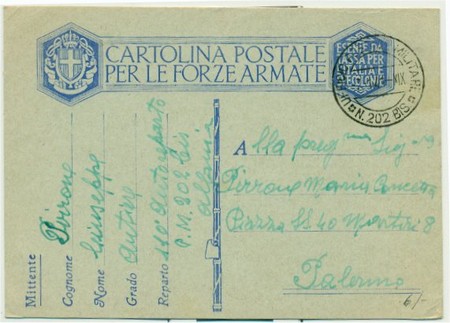 CARTOLINA POSTALE
PER LE FORZE ARMATE
ESENTE DA
TASSA PER
L'ITALIA E
COLONIE
MILITARE
XIX
N. 202 BIS
Mittente
Cognome Pirrone
Nome Giuseppe
Grado Autiere
Reparto 110° Autoreparto
P.M. 202 bis
Albania
Alla preg.ma Sig.ra
Pirrone Maria Concetta
Piazza SS. 40 Martiri 8
Palermo
6/-